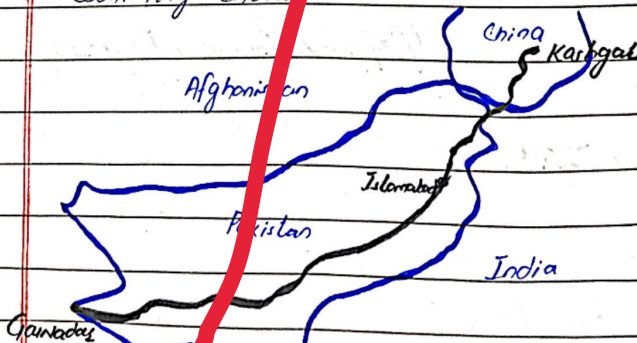 China
Kashgar
Afghanistan
Islamabad
Pakistan
India
Gawadar